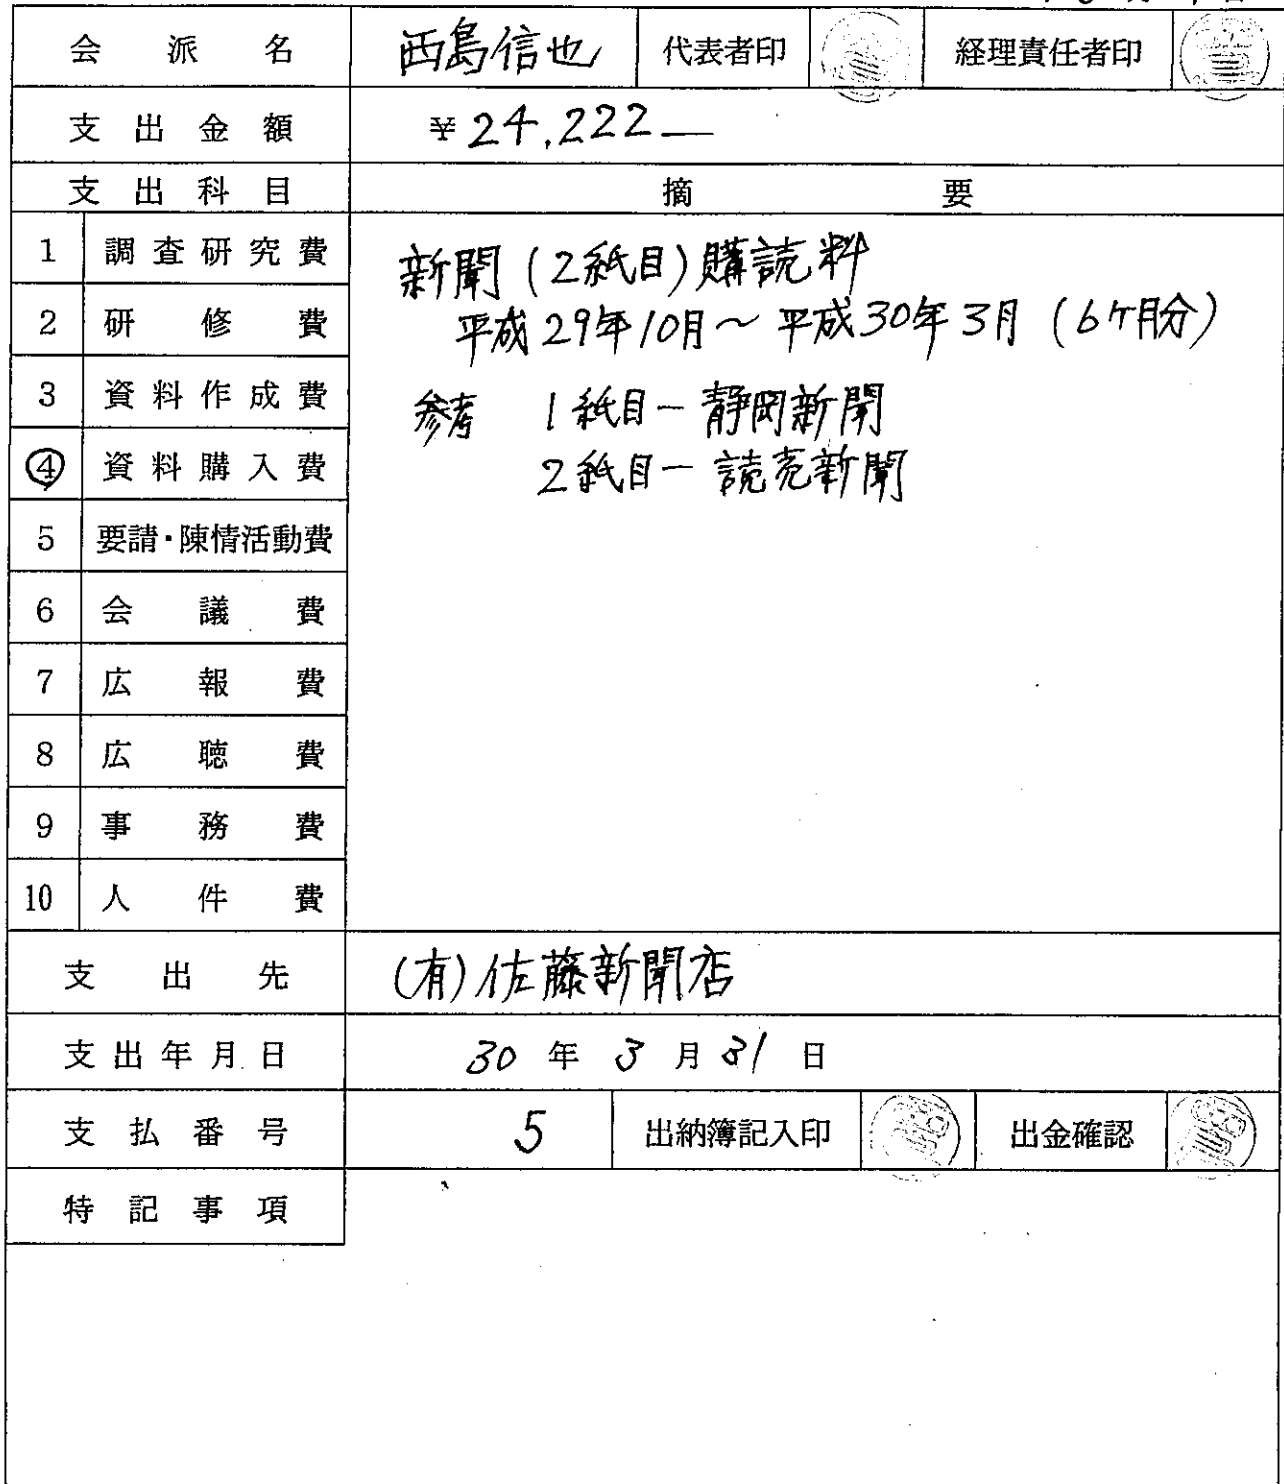 会派名 西島信也 代表者印 経理責任者印
支出金額 ¥24,222―
支出科目 摘要
1 調査研究費
2 研修費
3 資料作成費
④ 資料購入費
5 要請・陳情活動費
6 会議費
7 広報費
8 広聴費
9 事務費
10 人件費
新聞(2紙目)購読料
平成29年10月～平成30年3月(6ケ月分)
参考 1紙目ー静岡新聞
2紙目ー読売新聞
支出先 (有)佐藤新聞店
支出年月日 30年3月31日
支払番号 5 出納簿記入印 出金確認
特記事項